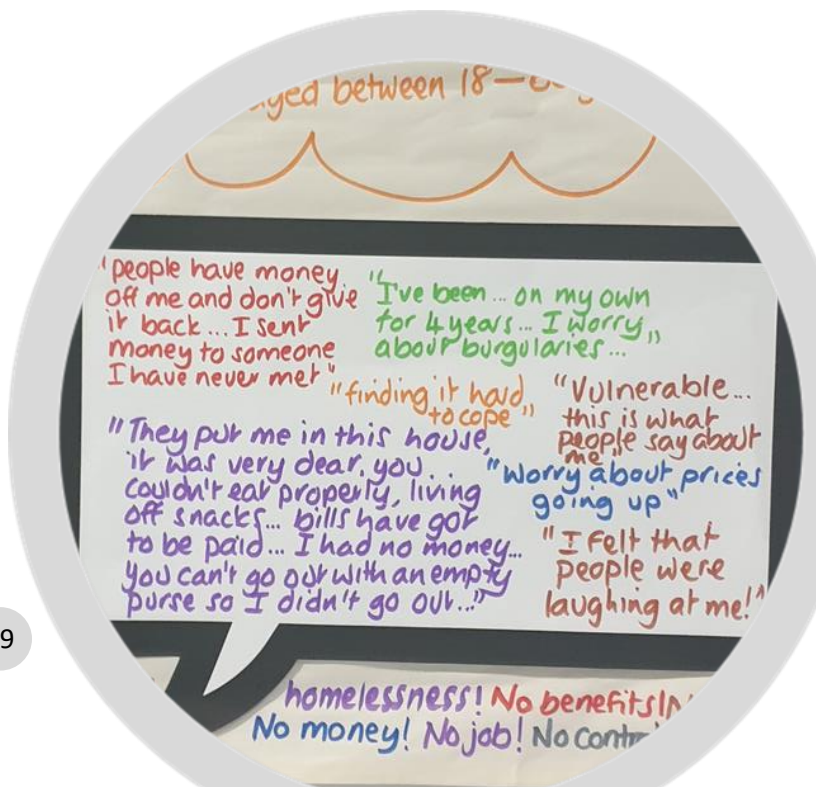 aged between 18—
"people have money
off me and don't give
it back... I sent
money to someone
I have never met"
"I've been... on my own
for 4 years... I worry
about burgularies..."
"finding it hard
to cope"
"Vulnerable...
this is what
people say about
me"
"They put me in this house,
it was very dear, you...
couldn't eat properly, living
off snacks... bills have got
to be paid... I had no money...
you can't go out with an empty
purse so I didn't go out..."
"Worry about prices
going up"
"I felt that
people were
laughing at me!"
homelessness! No benefits!
No money! No job! No
9